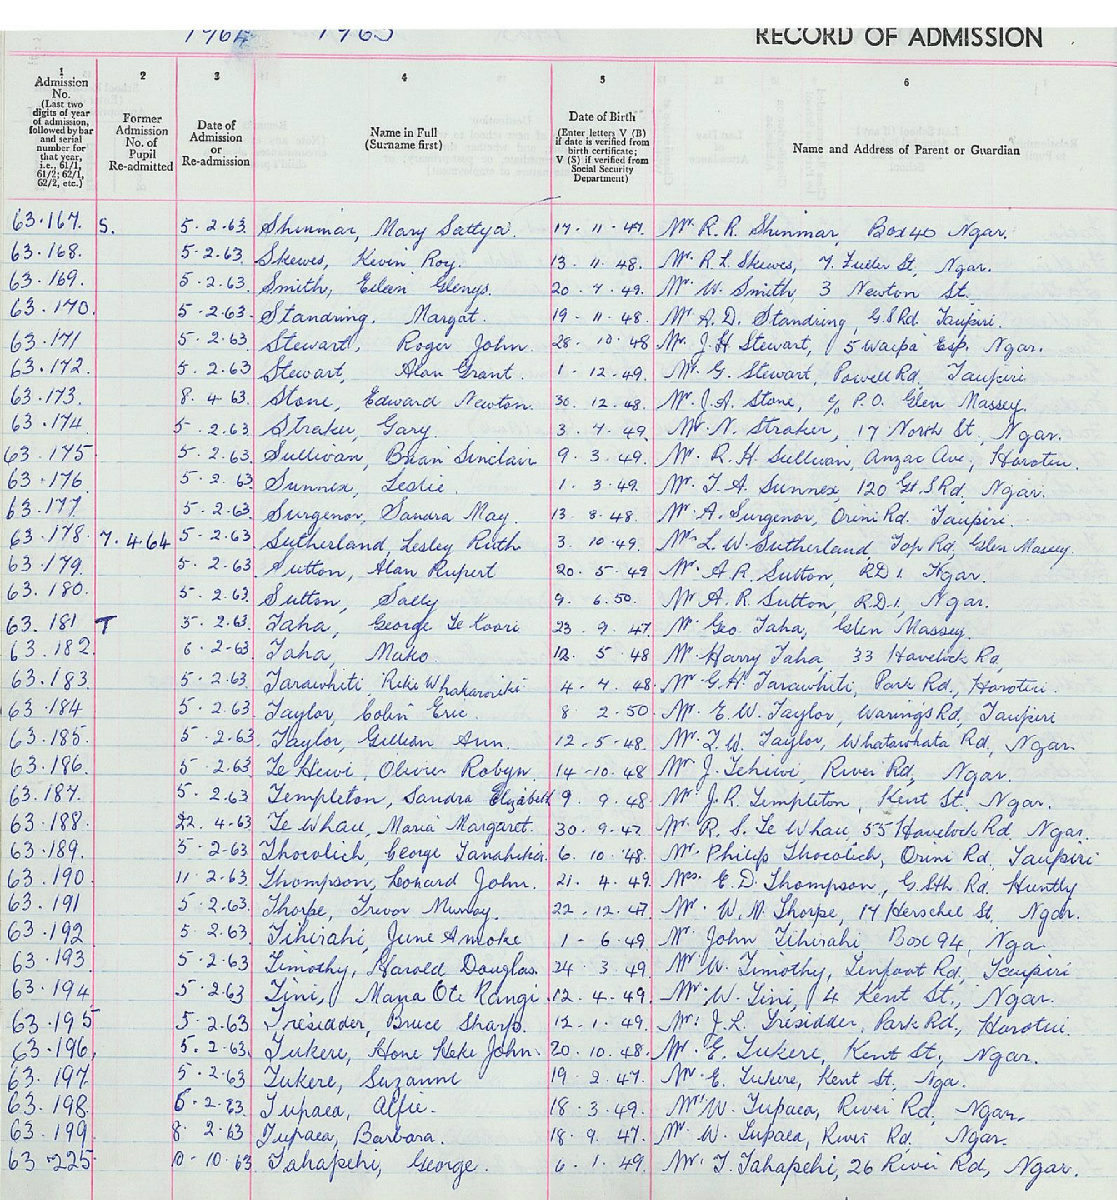 1964 1963
RECORD OF ADMISSION
1
Admission
No.
(Last two
digits of year
of admission,
followed by bar
and serial
number for
that year,
i.e., 61/1,
61/2; 62/1,
62/2, etc.)
2
Former
Admission
No. of
Pupil
Re-admitted
3
Date of
Admission
or
Re-admission
4
Name in Full
(Surname first)
5
Date of Birth
(Enter letters V (B)
if date is verified from
birth certificate;
V (S) if verified from
Social Security
Department)
6
Name and Address of Parent or Guardian
63.167. S. 5.2.63. Shinmar, Mary Sattya. 17.11.47. Mr. R.R. Shinmar, Box 40 Ngar.
63.168. 5.2.63. Skewes, Kevin Roy. 13.11.48. Mr. R.L. Skewes, 7. Fuller St, Ngar.
63.169. 5.2.63. Smith, Eileen Glenys. 20.7.49. Mr. W. Smith, 3 Newton St.
63.170. 5.2.63. Standring. Margat. 19.11.48. Mr A.D. Standring, G.S Rd. Taupiri.
63.171 5.2.63 Stewart, Roger John. 28.10.48 Mr. J.H Stewart, 5 Waipa Esp. Ngar.
63.172. 5.2.63 Stewart, Alan Grant. 1.12.49. Mr. G. Stewart, Powell Rd, Taupiri
63.173. 8.4.63. Stone, Edward Newton. 30.12.48. Mr. J.A. Stone, c/o P.O. Glen Massey
63.174. 5.2.63 Straker, Gary. 3.7.49. Mr. N. Straker, 17 North St, Ngar.
63.175. 5.2.63. Sullivan, Brian Sinclair 9.3.49. Mr. R.H. Sullivan, Anzac Ave, Horotiu.
63.176 5.2.63 Sunnex, Leslie. 1.3.49. Mr. T.A. Sunnex, 120 Gt.S Rd, Ngar.
63.177. 5.2.63. Surgenor, Sandra May. 13.8.48. Mr. A. Surgenor, Orini Rd. Taupiri.
63.178. 7.4.64 5.2.63 Sutherland, Lesley Ruth 3.10.49. Mr. L.W. Sutherland Top Rd, Glen Massey.
63.179. 5.2.63. Sutton, Alan Rupert 20.5.49 Mr. A.R. Sutton, R.D 1. Ngar.
63.180. 5.2.63. Sutton, Sally 9.6.50. Mr A.R. Sutton, R.D.1, Ngar.
63.181 T 5.2.63. Taha, George Te Koori 23.9.47. Mr. Geo. Taha, Glen Massey.
63.182. 6.2.63 Taha, Muko 12.5.48 Mr. Harry Taha, 33 Havelock Rd,
63.183. 5.2.63. Tarawhiti, Reke 4.4.48. Mr. G.H. Tarawhiti, Park Rd, Horotiu.
63.184 5.2.63. Taylor, Colin Eric. 8.2.50. Mr. E.W. Taylor, Warings Rd, Taupiri
63.185. 5.2.63. Taylor, Gillian Ann. 12.5.48. Mr. T.W. Taylor, Whatawhata Rd, Ngar.
63.186. 5.2.63. Te Huwi, Olivier Robyn. 14.10.48 Mr. J. Tehuwi, River Rd, Ngar.
63.187. 5.2.63 Templeton, Sandra Elizabeth 9.9.48. Mr. J.R. Templeton, Kent St. Ngar.
63.188. 22.4.63. Te Whau, Maria Margaret. 30.9.47. Mr. R.S. Te Whau, 55 Havelock Rd. Ngar.
63.189. 5.2.63. Thocolich, George 6.10.48. Mr. Philip Thocolich, Orini Rd, Taupiri
63.190. 11.2.63. Thompson, Leonard John. 21.4.49. Mrs. E.D. Thompson, G.Sth Rd. Huntly
63.191 5.2.63. Thorpe, Trevor Murray. 22.12.47 Mr. W.M. Thorpe, 17 Herschel St. Ngar.
63.192 5.2.63 Tihirahi, June Amoke 1.6.49 Mr. John Tihirahi Box 94, Nga.
63.193. 5.2.63 Timothy, Harold Douglas. 24.3.49. Mr W. Timothy, Tenfoot Rd, Taupiri
63.194. 5.2.63 Tini, Mana Ote Rangi. 12.4.49. Mr. W. Tini, 4 Kent St., Ngar.
63.195 5.2.63 Tresidder, Bruce Sharp. 12.1.49. Mr. J.L. Tresidder, Park Rd, Horotiu.
63.196. 5.2.63. Tukere, Hone Heke John. 20.10.48. Mr. E. Tukere, Kent St., Ngar.
63.197 5.2.63 Tukere, Suzanne 19.2.47. Mr. E. Tukere, Kent St, Nga.
63.198. 5.2.63 Tupaea, Alfie. 18.3.49. Mr. W. Tupaea, River Rd, Ngar.
63.199. 8.2.63 Tupaea, Barbara. 18.9.47. Mr. W. Tupaea, River Rd, Ngar.
63.225. 10.10.63. Tahapehi, George. 6.1.49. Mr. T. Tahapehi, 26 River Rd, Ngar.